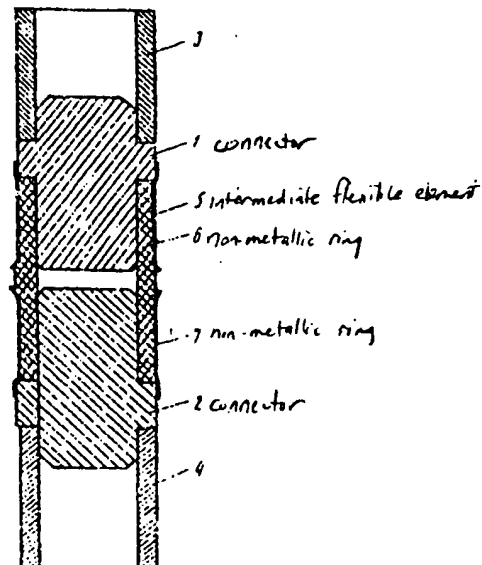 3
1 connector
5 intermediate flexible element
6 non-metallic ring
7 non-metallic ring
2 connector
4